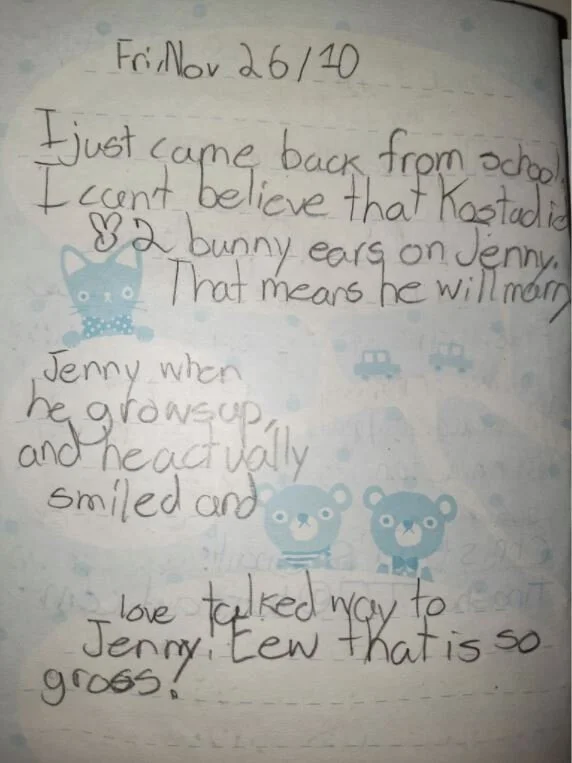 Fri, Nov 26/10
I just came back from school.
I can't believe that Kostadi
2 bunny ears on Jenny.
That means he will marry
Jenny when
he grows up,
and he actually
smiled and
love talked way to
Jenny. Eew that is so
gross!